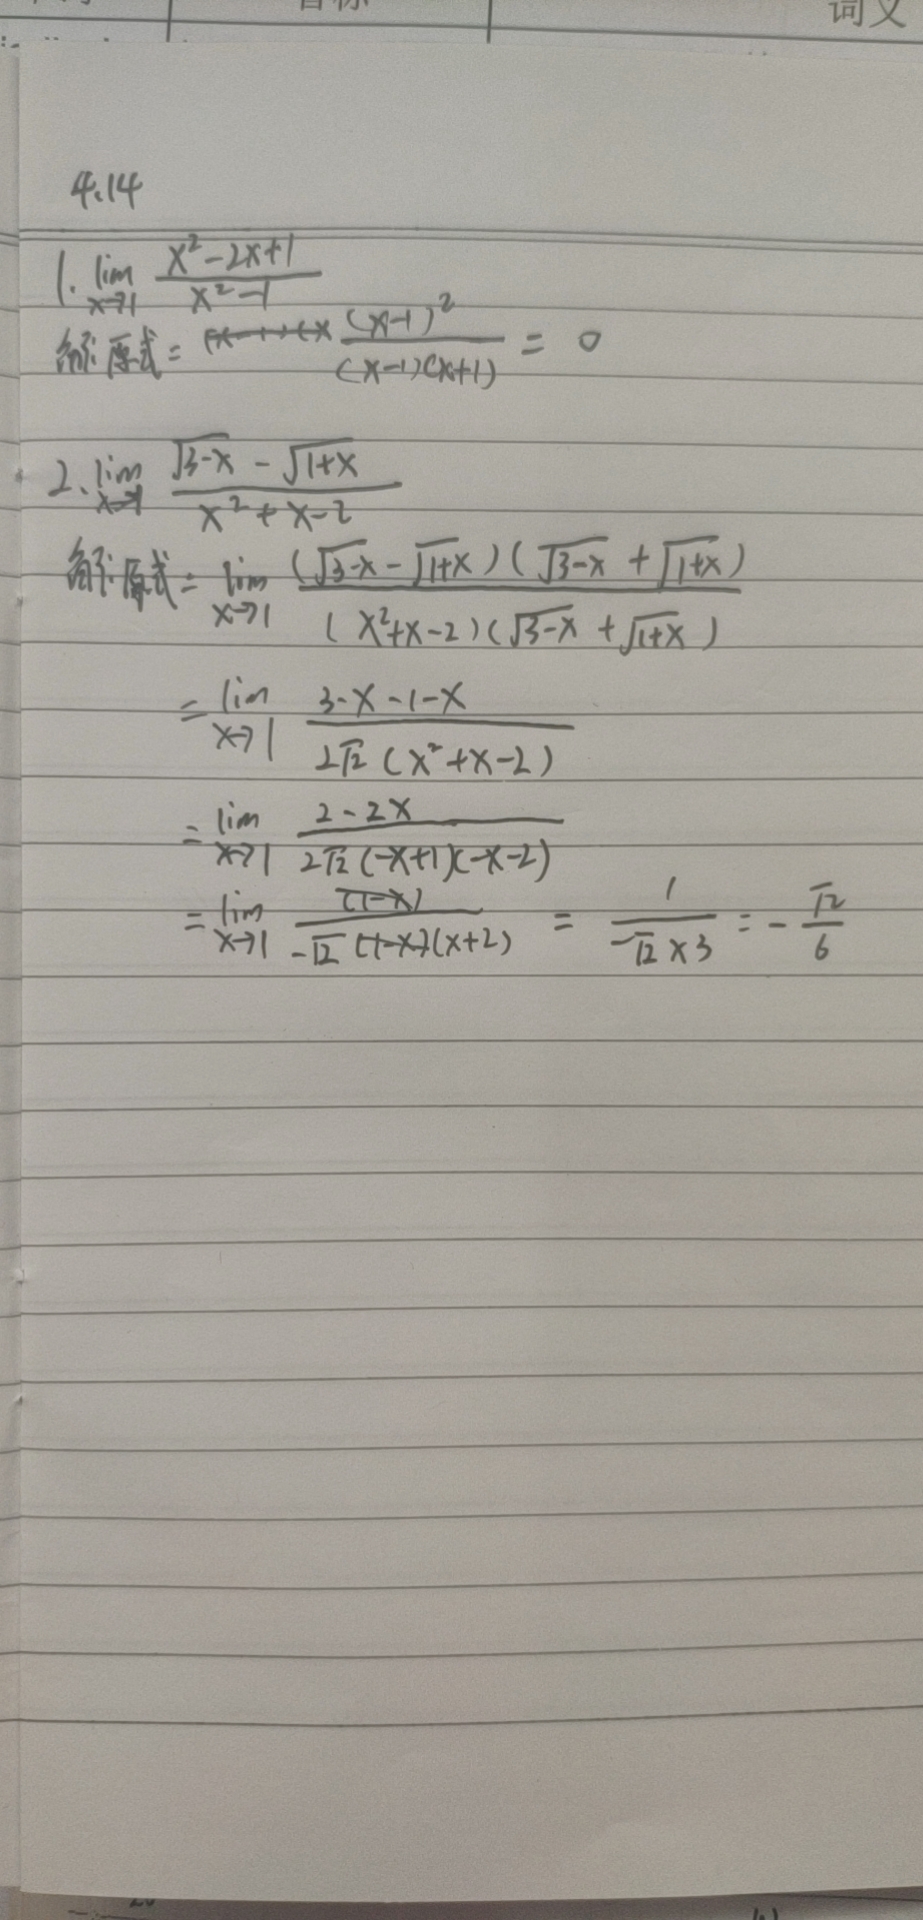 词义
4.14
1. lim x→1 (x²-2x+1)/(x²-1)
解:原式= (x-1)²/((x-1)(x+1)) = 0
2. lim x→1 (√(3-x) - √(1+x))/(x²+x-2)
解:原式= lim x→1 ((√(3-x) - √(1+x))(√(3-x) + √(1+x)))/((x²+x-2)(√(3-x) + √(1+x)))
= lim x→1 (3-x-1-x)/(2√2(x²+x-2))
= lim x→1 (2-2x)/(2√2(-x+1)(-x-2))
= lim x→1 (1-x)/(-√2(1-x)(x+2)) = 1/(-√2×3) = -√2/6